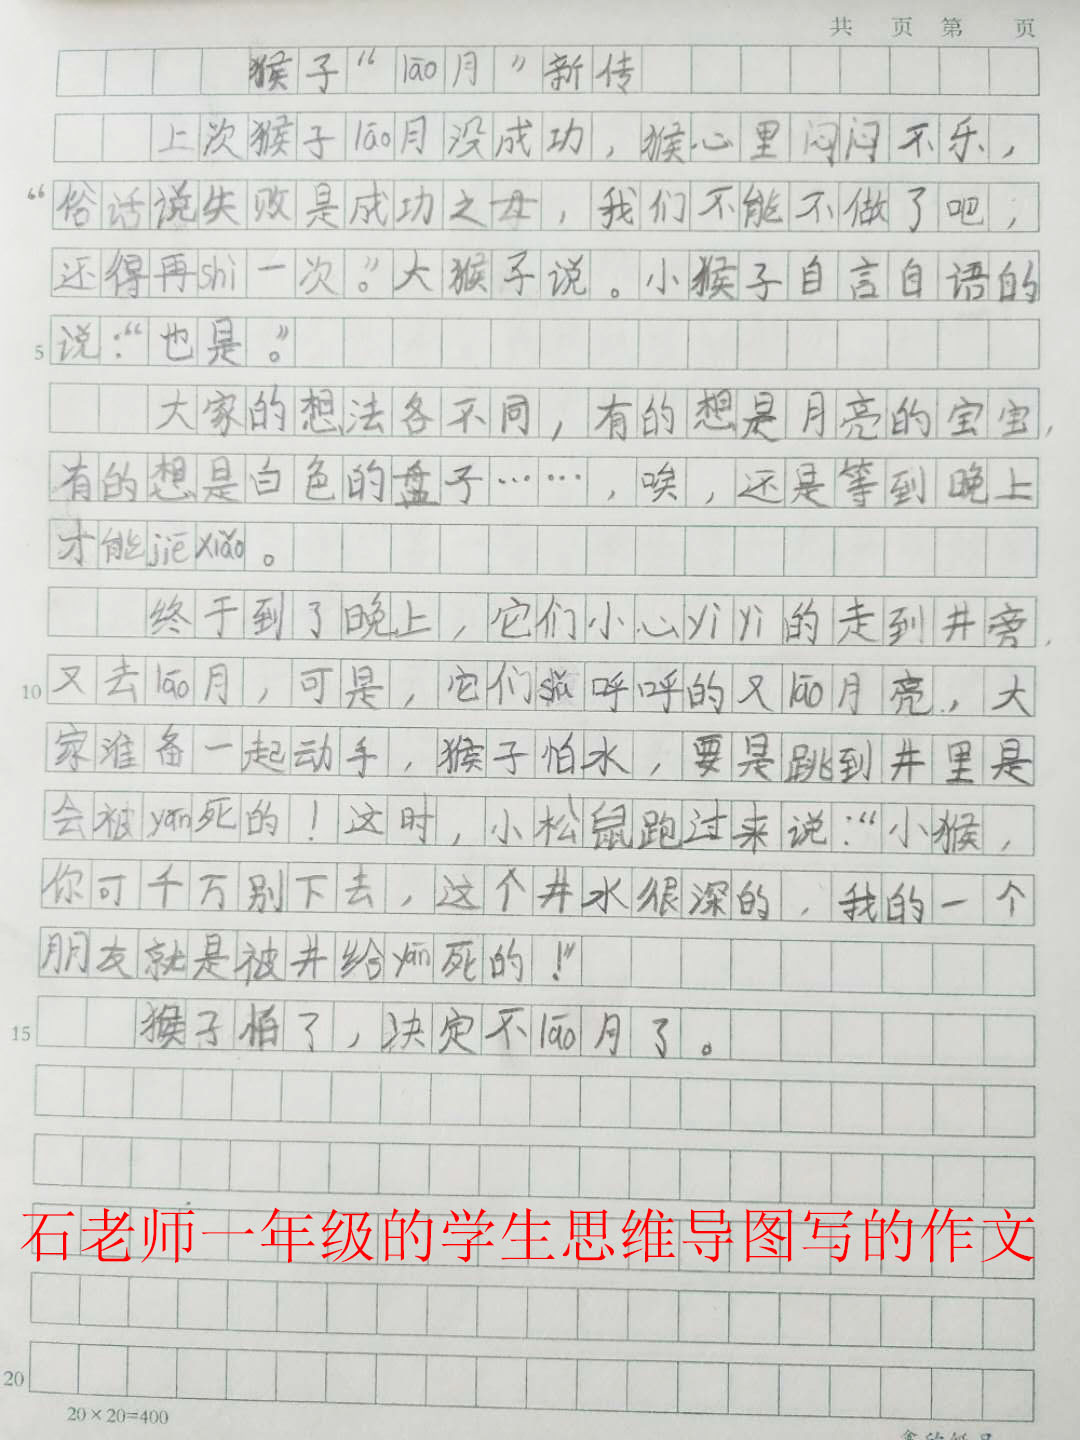 共 页 第 页
猴子“lāo月”新传
上次猴子lāo月没成功，猴心里闷闷不乐，
“俗话说失败是成功之母，我们不能不做了吧，
还得再shì一次。”大猴子说。小猴子自言自语的
5 说：“也是。”
大家的想法各不同，有的想是月亮的宝宝，
有的想是白色的盘子……，唉，还是等到晚上
才能jiē xiǎo。
终于到了晚上，它们小心yì yì的走到井旁，
10 又去lāo月，可是，它们shǎ呼呼的又lāo月亮，大
家准备一起动手，猴子怕水，要是跳到井里是
会被yān死的！这时，小松鼠跑过来说：“小猴，
你可千万别下去，这个井水很深的，我的一个
朋友就是被井给yān死的！”
15 猴子怕了，决定不lāo月了。
石老师一年级的学生思维导图写的作文
20
20×20=400